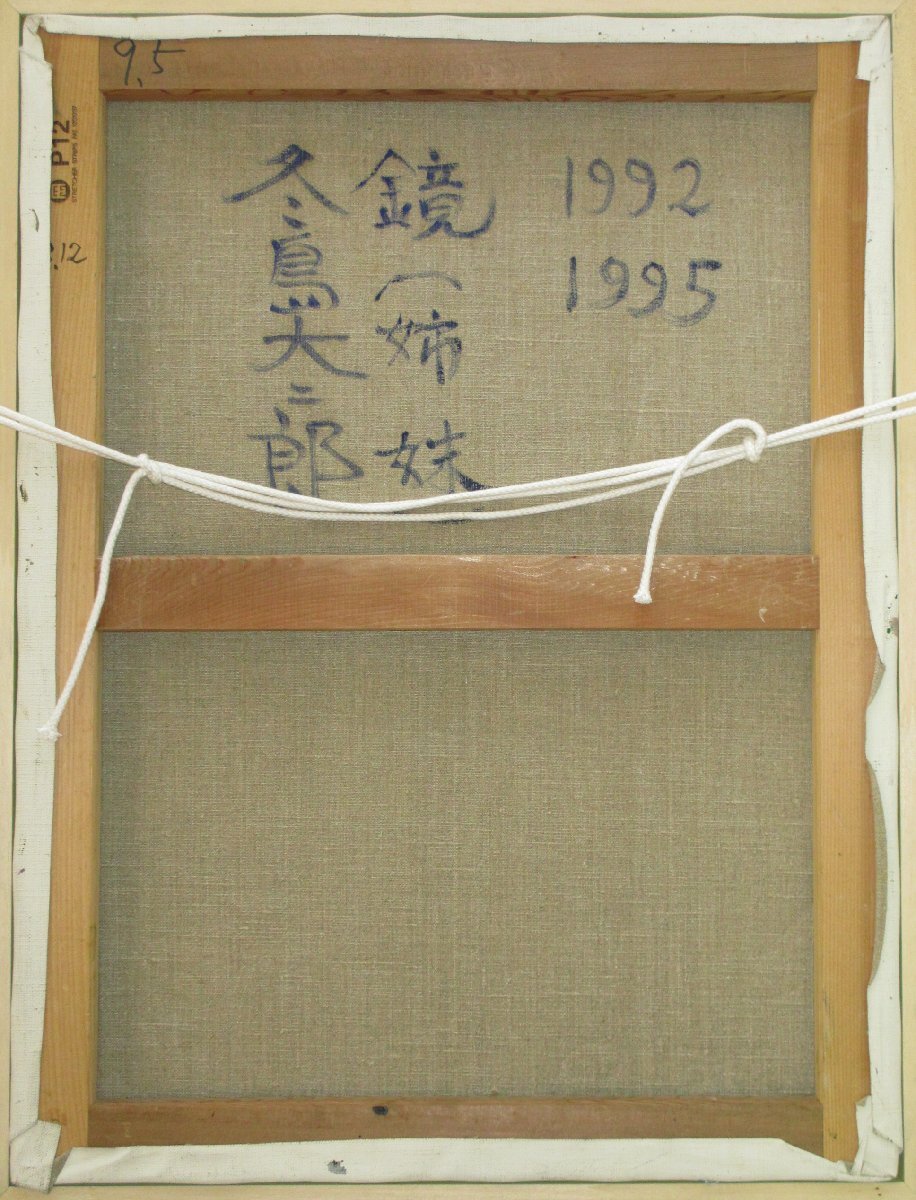 9.5
P12
.12
1992
1995
鏡（姉妹）
冬島大二郎